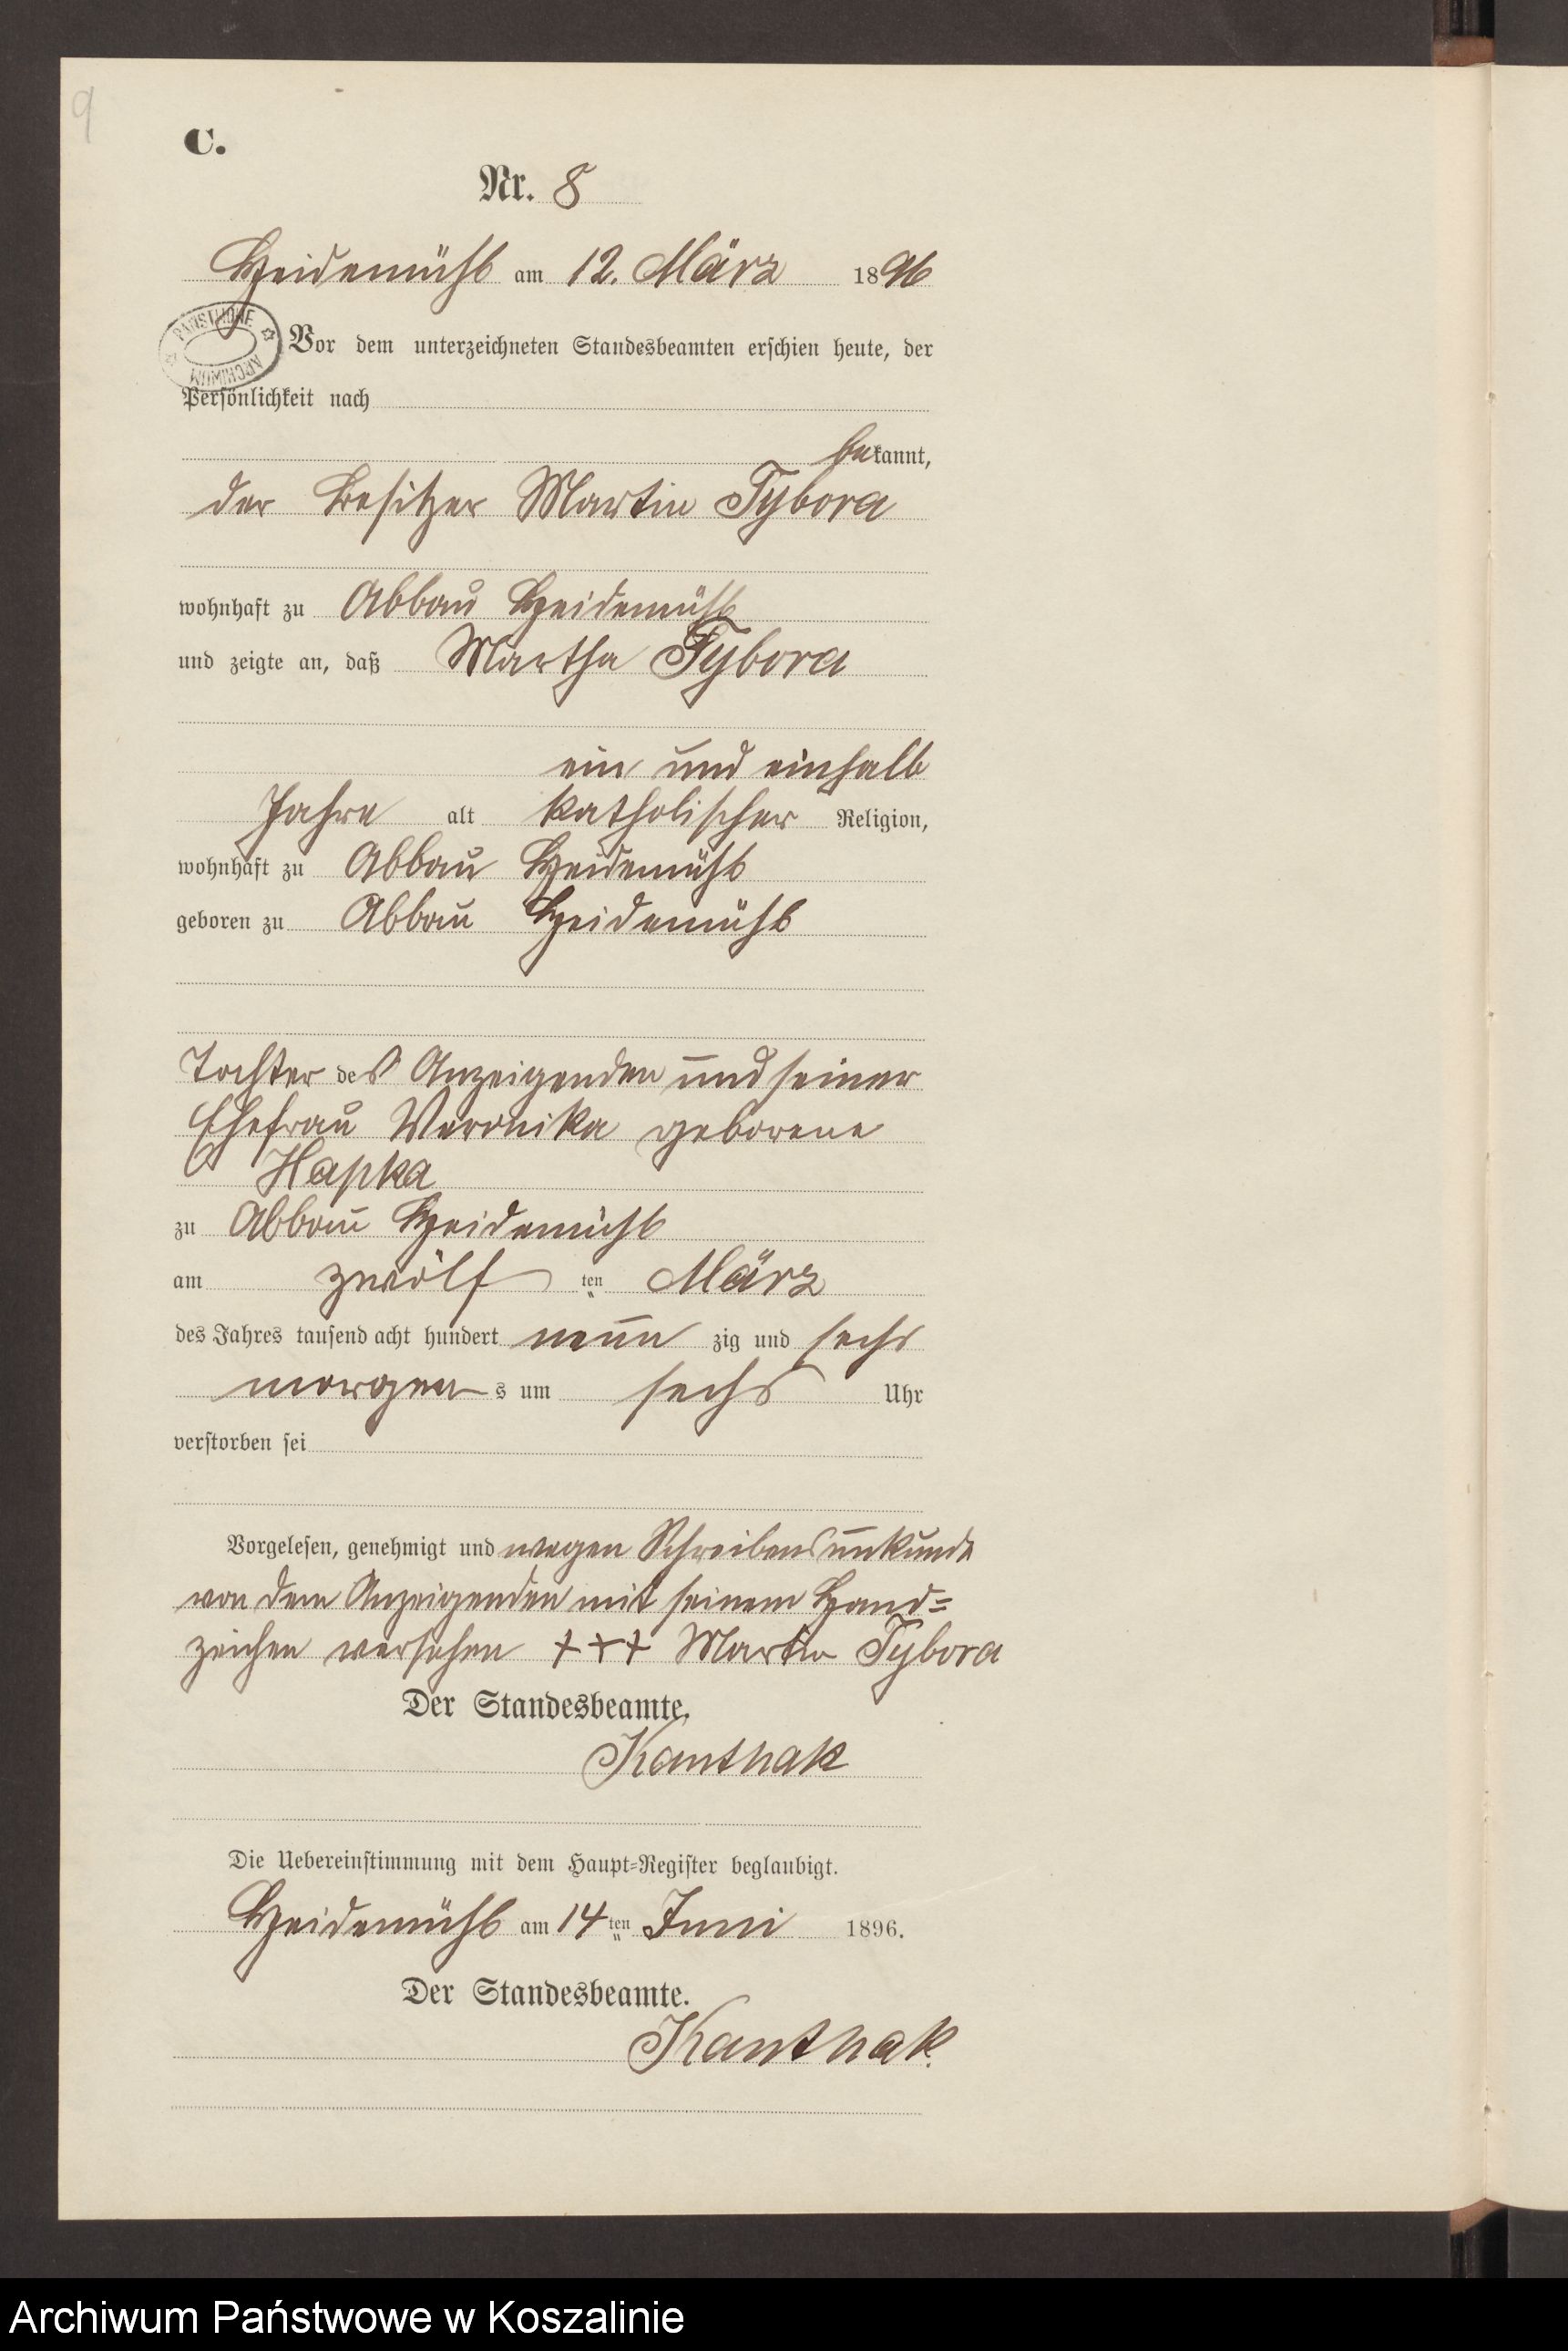 9
C.
Nr. 8
Heidemühl am 12. März 1896
PAŃSTWOWE
ARCHIWUM
Vor dem unterzeichneten Standesbeamten erschien heute, der
Persönlichkeit nach
bekannt,
der Besitzer Martin Tybora
wohnhaft zu Abbau Heidemühl
und zeigte an, daß Martha Tybora
ein und einhalb
Jahre alt katholischer Religion,
wohnhaft zu Abbau Heidemühl
geboren zu Abbau Heidemühl
Tochter des Anzeigenden und seiner
Ehefrau Veronika geborene
Hapka
zu Abbau Heidemühl
am zwölf ten März
des Jahres tausend acht hundert neun zig und sechs
morgen s um sechs Uhr
verstorben sei
Vorgelesen, genehmigt und wegen Schreibensunkunde
von dem Anzeigenden mit seinem Hand=
zeichen versehen +++ Martin Tybora
Der Standesbeamte.
Kanthak
Die Uebereinstimmung mit dem Haupt=Register beglaubigt.
Heidemühl am 14 ten Juni 1896.
Der Standesbeamte.
Kanthak.
Archiwum Państwowe w Koszalinie